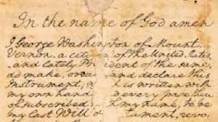 In the name of God amen
I George Washington of Mount
Vernon, a citizen of the United States
and lately Pr ident of the same,
do make, or and declare this
Instrument, w is written with
my own han every page
of subscribed my name, to be
my last Will & tament, rev